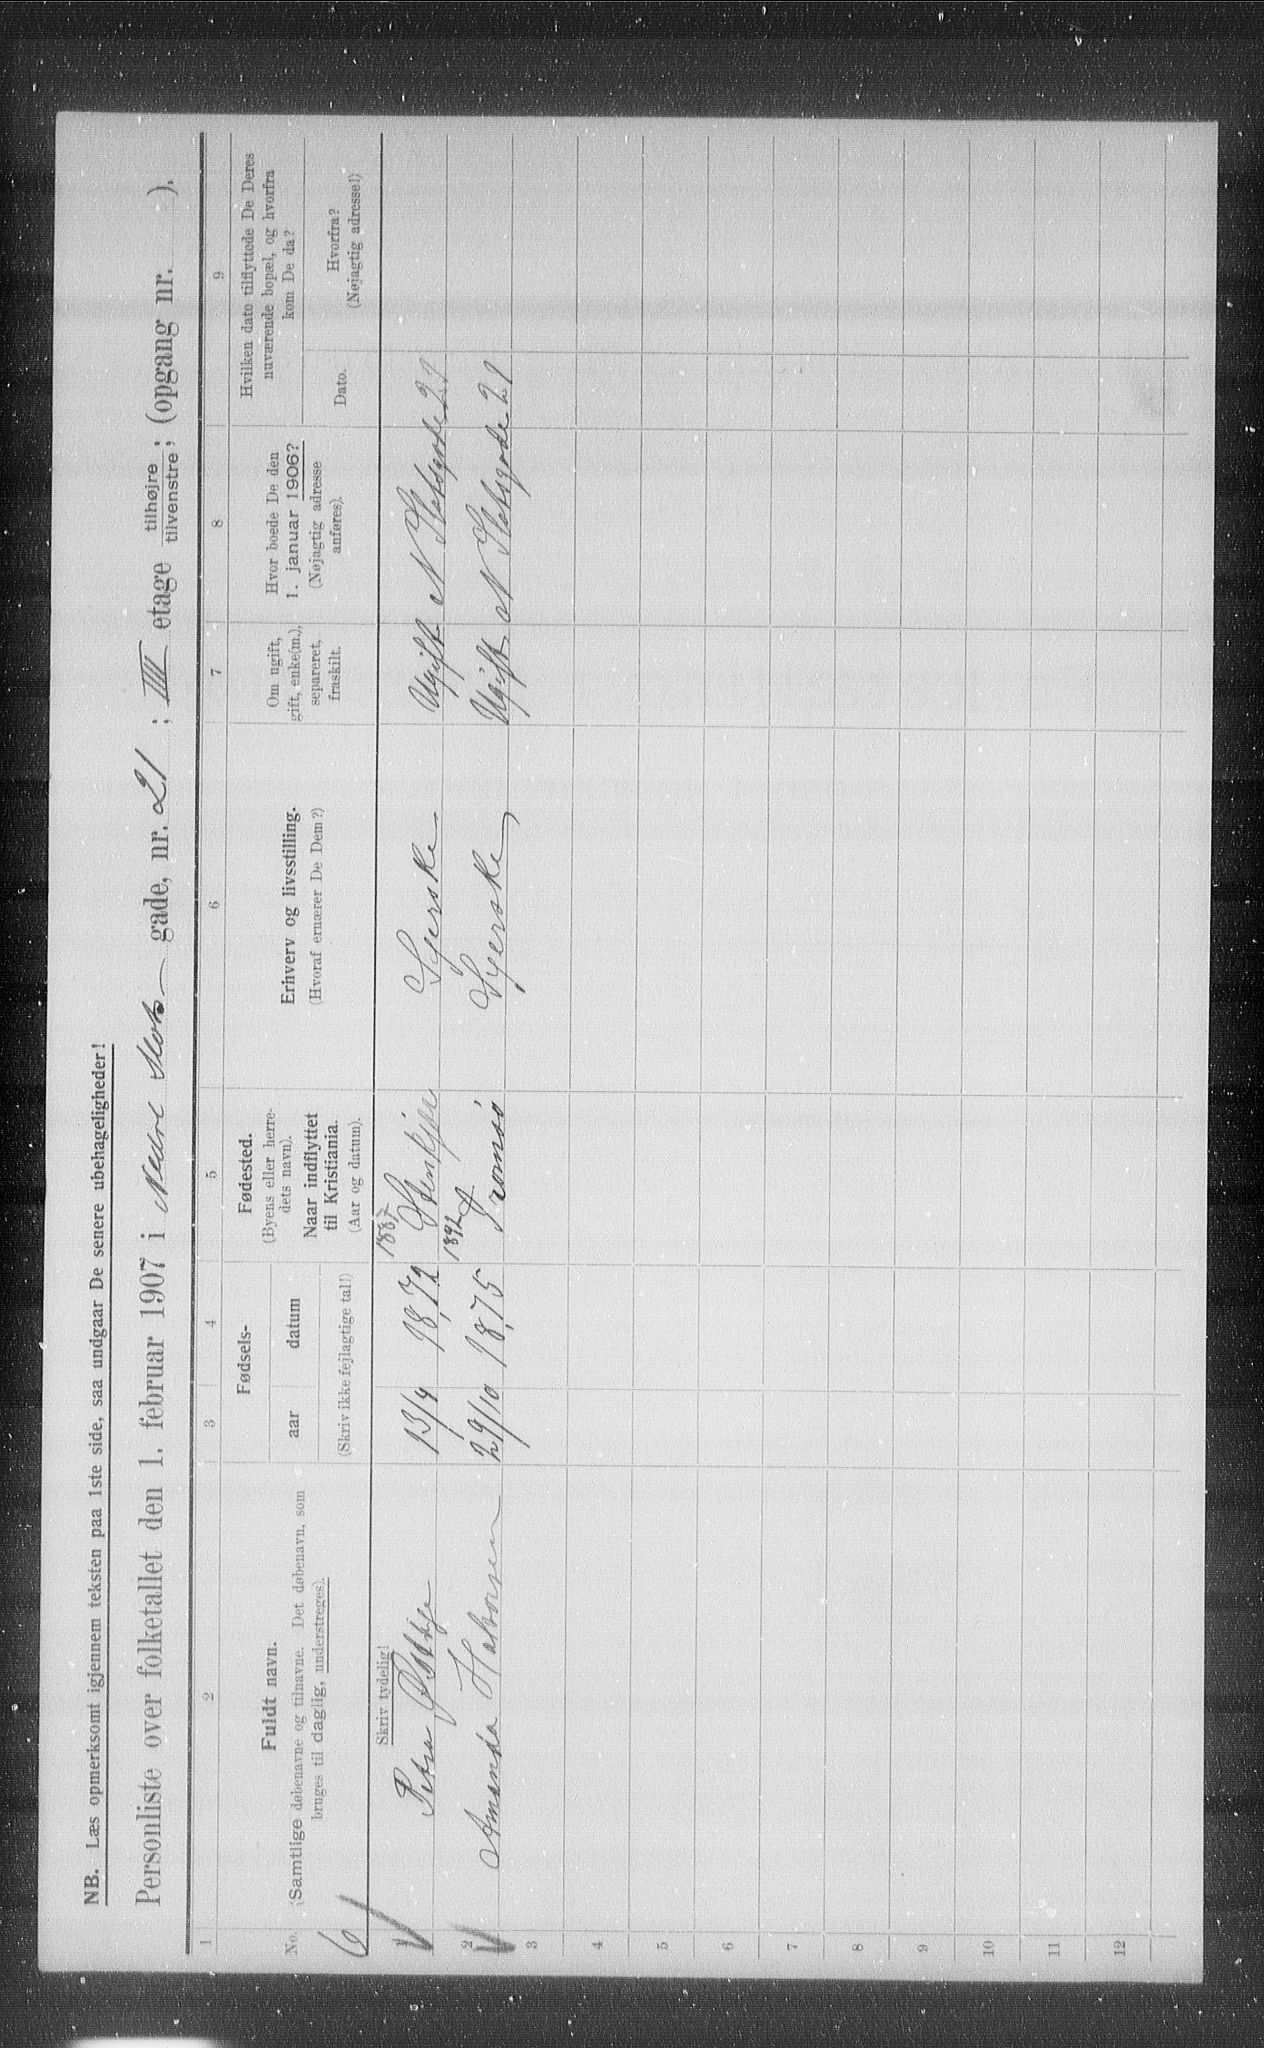 NB. Læs opmerksomt igjennem teksten paa 1ste side, saa undgaar De senere ubehageligheder!
Personliste over folketallet den 1. februar 1907 i Nedre Slots- gade, nr. 21; III etage tilhøjre; tilvenstre; (opgang nr. ).
1 2 3 4 5 6 7 8 9
No.
Fuldt navn.
(Samtlige døbenavne og tilnavne. Det døbenavn, som
bruges til daglig, understreges).
Fødsels-
aar datum
(Skriv ikke fejlagtige tal!)
Fødested.
(Byens eller herre-
dets navn).
Naar indflyttet
til Kristiania.
(Aar og datum).
Erhverv og livsstilling.
(Hvoraf ernærer De Dem?)
Om ugift,
gift, enke(m.),
separeret,
fraskilt.
Hvor boede De den
1. januar 1906?
(Nøjagtig adresse
anføres).
Hvilken dato tilflyttede De Deres
nuværende bopæl, og hvorfra
kom De da?
Dato.
Hvorfra?
(Nøjagtig adresse!)
6
Skriv tydelig!
1887
1 Petra 13/4 1872 Stenkjær Syerske Ugift N Slotsgade 21
1892
2 Amanda Halvorsen 29/10 1875 Tromsö Syerske Ugift N Slotsgade 21
3
4
5
6
7
8
9
10
11
12